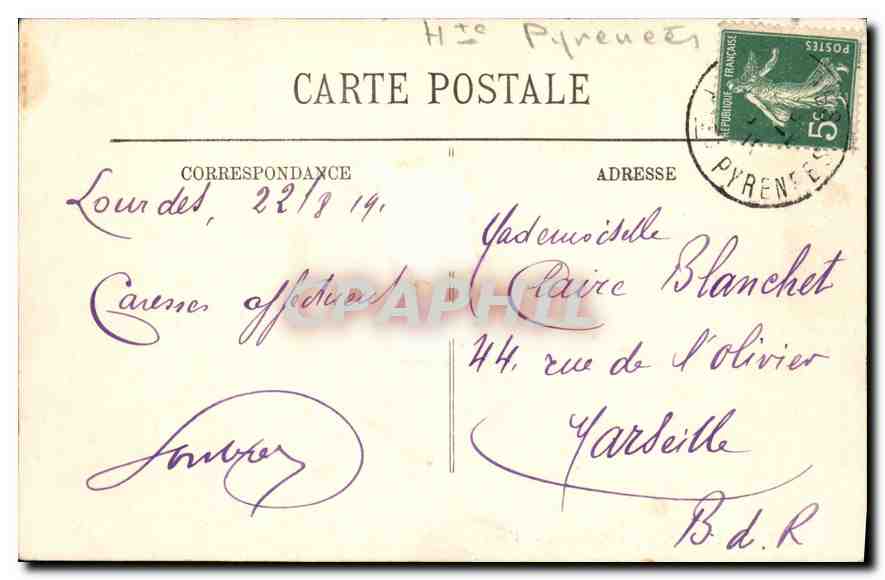 Hte Pyrenées
CARTE POSTALE
RÉPUBLIQUE FRANÇAISE
POSTES
5c
PYRENEES
CORRESPONDANCE
ADRESSE
Lourdes, 22/8 19.
Caresses
CPAPHIL
Mademoiselle
Claire Blanchet
44. rue de l'olivier
Marseille
B. d. R